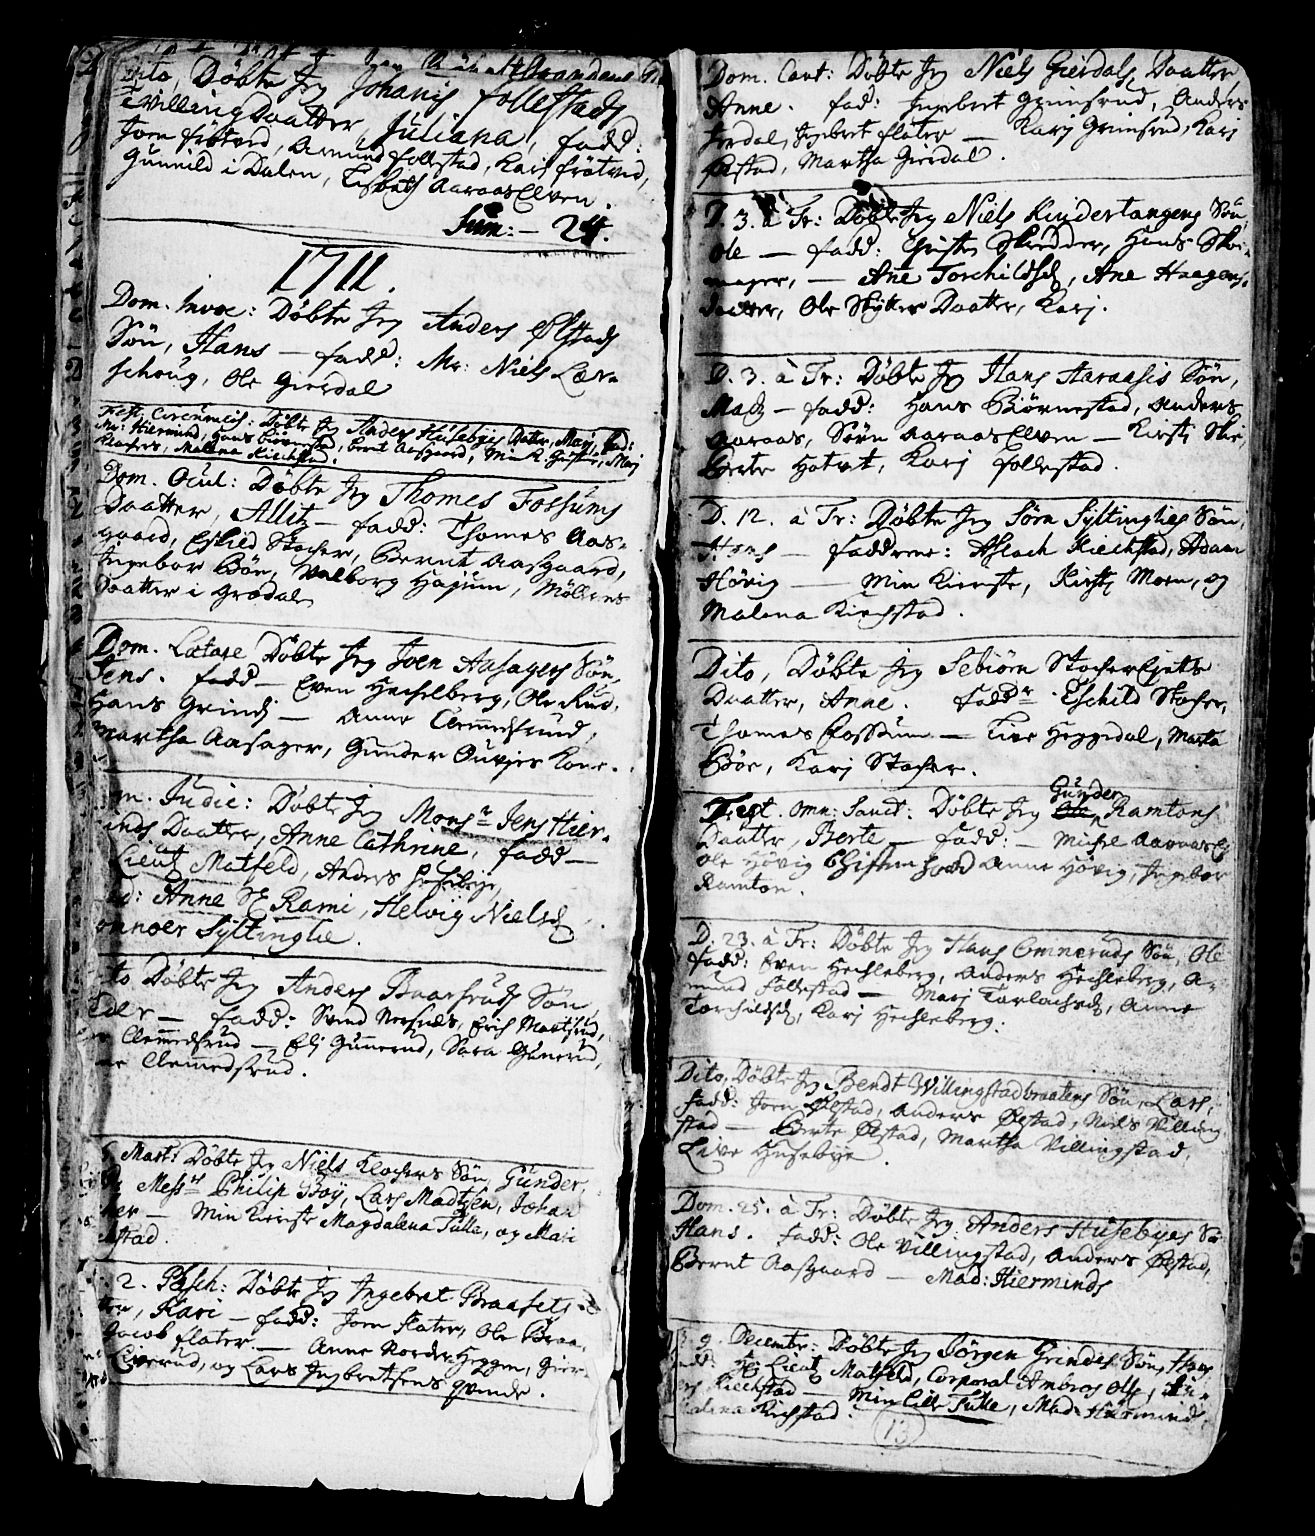 Dito, Døbte Jeg Johanis Follestads
tvilling Daatter, Juliana, fadd:
Joen frøtved, Amund Follestad, Kari frøtvid,
Gunnild i Dalen, Lisbeth AaraasElven.
Sum: — 24.
1711.
Dom. Invoc: Døbte Jeg Anders Ølstads
Søn, Hans — fadd: Mr: Niels Lær-
schoug, Ole Gierdal
Fest. Circumcis: Døbte Jeg Anders Husebyes Datter, Mari, fad:
Mr: Hiermind, Hans Biørnestad, Bernt Aasgaard, Min K. Giuster, Mari
Klochers, Malena Kiechstad.
Dom. Ocul: Døbte Jeg Thomes Fossums
Daatter, Allitz — fadd: Thomes Aas-
gaard, Eskild Stocher, Bernt Aasgaard,
Ingebor Bøe, Valborg Hajum, Møllers
Daatter i Grødal
Dom. Lætare Døbte Jeg Joen Aasagers Søn,
Jens. fadd — Even Hechelberg, Ole Rud,
Hans Grindj — Anne Clemmedsrud,
Martha Aasager, Gunder Ouvjes Kone.
Judic: Døbte Jeg Monsr Jens Hier-
minds Daatter, Anne Cathrine, fadd —
Lieut Matfeld, Anders Husebye,
Anne Sl Rami, Helvig Nielsd
Syltinglie.
Dito Døbte Jeg Anders Baarsruds Søn
Peder — fadd: Svend Nersnæs, Erich Mortsrud,
Clemmedsrud — Elj Gunnerud, Sara Gunerud,
Clemmedsrud.
Mart: Døbte Jeg Niels Klochers Søn, Gunder,
Messrs Philip Boy, Lars Madtsen, Johan
— Min Kiereste Magdalena Tulle, og Mari
stad.
2. Pasch: Døbte Jeg Ingebret Braasets
Kari — fadd: Joen flater, Ole Braa-
Jacob flater — Anne Norder Heggen, Gier-
Liverud, og Lars Ingebretsens qvinde.
Dom. Cant: Døbte Jeg Niels Gierdals Daatter
Anne. fad: Ingebret Grimsrud, Anders
Jerdal, Ingebret flater — Karj Grimsrud, Karj
Ølstad, Martha Gierdal.
D. 3. à Tr: Døbte Jeg Niels Kindertangens Søn,
Ole — fadd: Christen Skredder, Hans Skoe-
mager, — Ane Torchildsd, Ane Haagens-
daatter, Ole Skytters Daatter, Karj.
D. 3. à Tr: Døbte Jeg Hans Aaraasis Søn,
Mads — fadd: Hans Biørnestad, Anders
Aaraas, Søvn AaraasElven — Kirsti Skre
Berte Hotvet, Karj Follestad.
D. 12. à Tr: Døbte Jeg Sørn Syltinglies Søn,
Hans — Faddrene: Aslach Kiechstad, Adam
Høvig — Min Kiereste, Kirsti Moen, og
Malena Kiechstad.
Dito, Døbte Jeg Sebiørn StocherEjets
Daatter, Anne. faddr Eschild Stocher,
Thomes Fossum — Live Heggedal, Marta
Bøe, Karj Stocher.
Gunder
Fest. Omn: Sanct: Døbte Jeg Ramtons
Daatter, Berte — fadd: — Michel Aaraas
Ole Høvig Anne Høvig, Ingebor
Ramton.
D. 23. à Tr: Døbte Jeg Hans Omneruds Søn, Ole
fadd: Even Hechleberg, Anders Hechleberg, A-
mund Follestad — Marj Torlachsd, Anne
Torchildsd, Karj Hechleberg.
Dito, Døbte Jeg Bendt Willingstadbraatens Søn, Lars,
fadd: Joen Ølstad, Anders Ølstad, Niels Villing
stad — Berte Ølstad, Martha Villingstad,
Live Husebye.
Dom. 25. à Tr: Døbte Jeg Anders Husebyes Sø
Hans. fadd: Ole Villingstad, Anders Ølstad,
Bernt Aasgaard — Mad: Hierminds
9. Decembr: Døbte Jeg Jørgen Grindes Søn, Hans
Hr Lieut Matfeld, Corporal Ambros Ols,
Kiechstad — Min Lille Tulle, Mad Hiermind,
Malena Kiechstad.
13